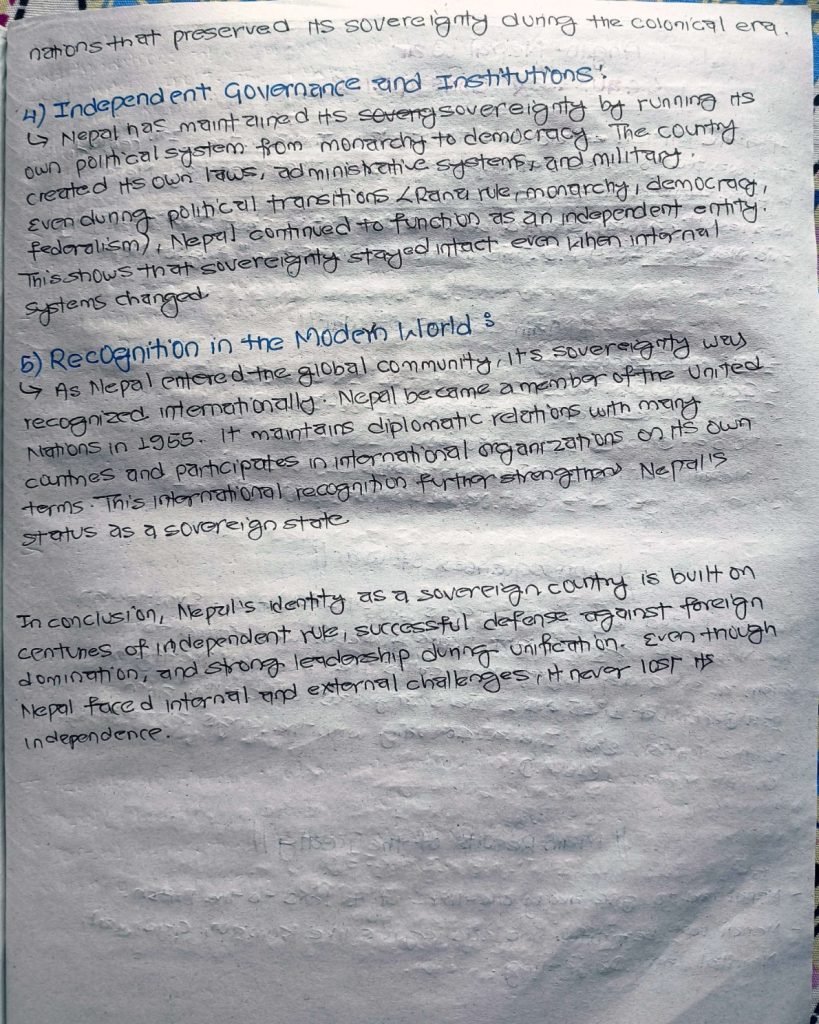 nations that preserved its sovereignty during the colonical era.
4) Independent Governance and Institutions:
↳ Nepal has maintained its soveng sovereignty by running its
own political system from monarchy to democracy. The country
created its own laws, administrative systems, and military.
Even during political transitions (Rana rule, monarchy, democracy,
federalism), Nepal continued to function as an independent entity.
This shows that sovereignty stayed intact even when internal
systems changed.
5) Recognition in the Modern World :
↳ As Nepal entered the global community, its sovereignty was
recognized internationally. Nepal became a member of the United
Nations in 1955. It maintains diplomatic relations with many
countries and participates in international organizations on its own
terms. This international recognition further strengthens Nepal's
status as a sovereign state
In conclusion, Nepal's identity as a sovereign country is built on
centuries of independent rule, successful defense against foreign
domination, and strong leadership during unification. Even though
Nepal faced internal and external challenges, it never lost its
independence.